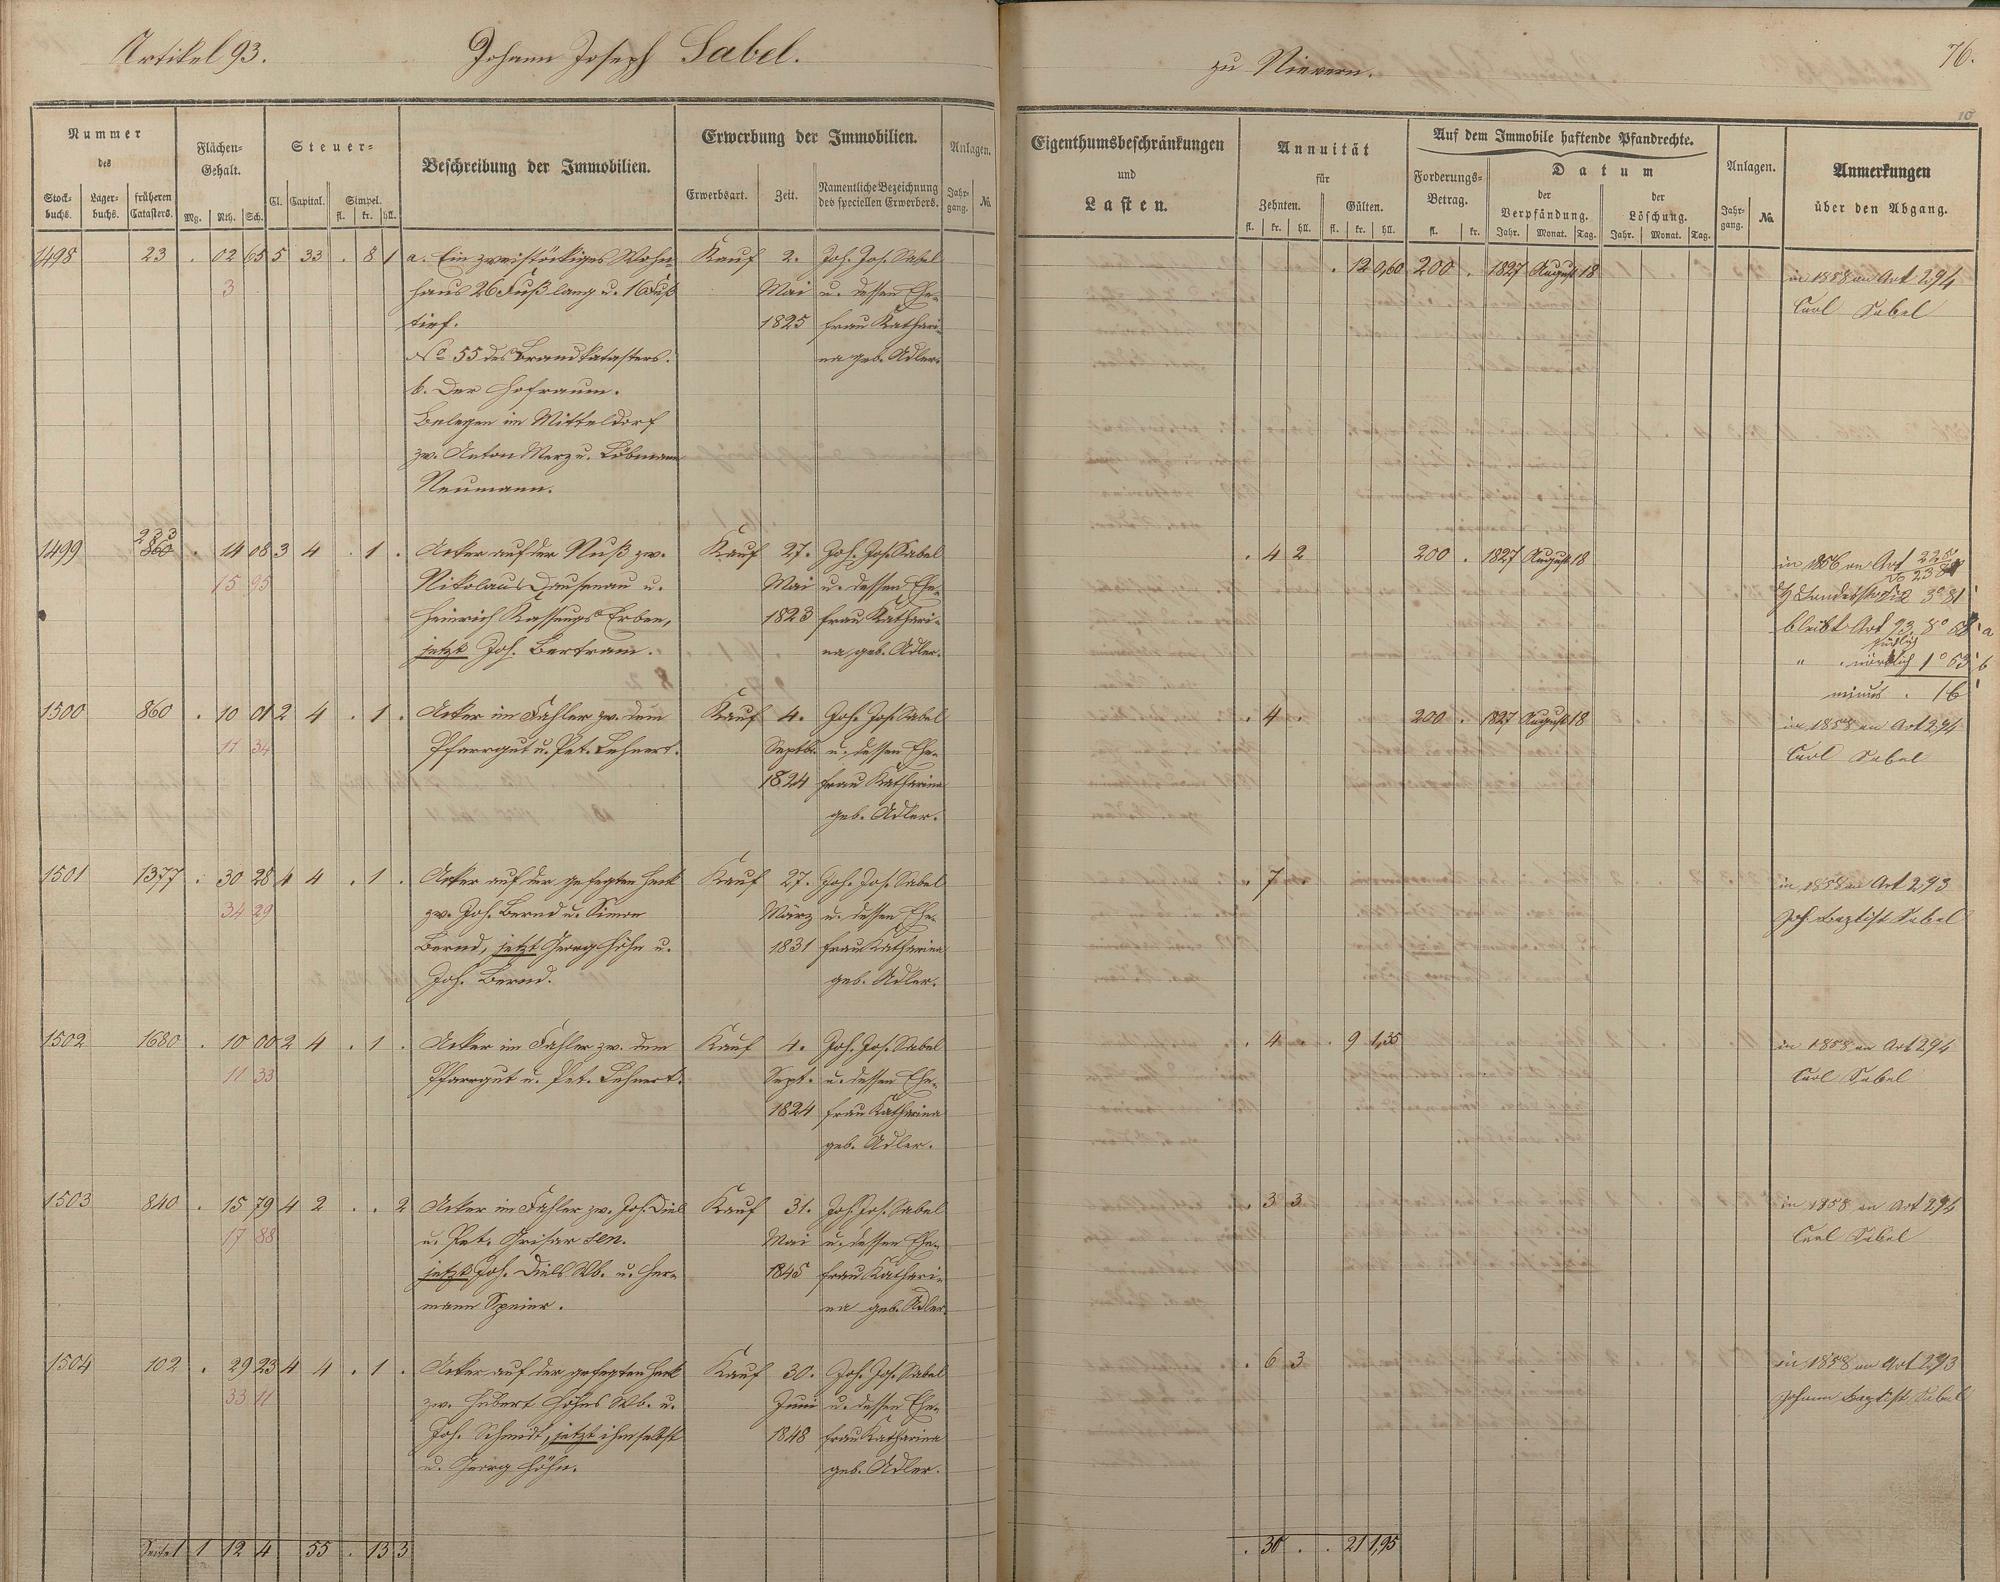 Artikel 93. Johann Joseph Sabel. zu Nievern. 76.
Nummer des
Stockbuchs. Lagerbuchs. früheren Catasters.
Flächen-Gehalt.
Mg. Rth. Sch.
Steuer-
Cl. Capital. Simpel. fl. kr. hll.
Beschreibung der Immobilien.
Erwerbung der Immobilien.
Erwerbsart. Zeit. Namentliche Bezeichnung des speciellen Erwerbers.
Anlagen.
Jahrgang. No.
Eigenthumsbeschränkungen und Lasten.
Annuität für
Zehnten. fl. kr. hll. Gülten. fl. kr. hll.
Auf dem Immobile haftende Pfandrechte.
Forderungs-Betrag. fl. kr.
Datum
der Verpfändung. Jahr. Monat. Tag.
der Löschung. Jahr. Monat. Tag.
Anlagen.
Jahrgang. No.
Anmerkungen über den Abgang.
10
1498 23 . 02 65 5 33 . 8 1 a. Ein zweistöckiges Wohn Kauf 2. Joh. Jos. Sabel . 12 0,60 200 . 1827 August 18 in 1858 an Art 294
3 haus 26 Fuß lang u. 16 Fuß Mai u. dessen Ehe- Carl Sabel
tief. 1825 frau Kathari-
No 55 des Brandkatasters. na geb. Adler.
b. Der Hofraum.
Belegen im Mitteldorf
zw. Anton Merz u. Löbmann
Neumann.
1499 860 . 14 08 3 4 . 1 . Acker auf der Nuß zw. Kauf 27. Joh. Jos. Sabel . 4 2 200 . 1827 August 18 in 1856 an Art 225
15 95 Nikolaus Dausenau u. Mai u. dessen Ehe-
Heinrich Erben, 1823 frau Kathari-
jetzt Joh. Bertram. na, geb. Adler.
bleibt Art 93
südlich
" nördlich 1° 63' b
minus . 16'
1500 860 . 10 01 2 4 . 1 . Acker im Fahler zw. dem Kauf 4. Joh. Jos. Sabel . 4 . 200 . 1827 August 18 in 1858 an Art 294
11 34 Pfarrgut u. Pet. Lehnert. Septb. u. dessen Ehe- Carl Sabel
1824 frau Katharina
geb. Adler.
1501 1377 . 30 28 4 4 . 1 . Acker auf der gefegten Heck Kauf 27. Joh. Jos. Sabel . 7 . in 1858 an Art 293
34 29 zw. Joh. Bernd u. Simon März u. dessen Ehe- Joh. Baptist Sabel
Bernd, jetzt Georg Höhn u. 1831 frau Katharina
Joh. Bernd. geb. Adler.
1502 1680 . 10 00 2 4 . 1 . Acker im Fahler zw. dem Kauf 4. Joh. Jos. Sabel . 4 . . 9 1,35 in 1858 an Art 294
11 33 Pfarrgut u. Pet. Lehnert. Sept. u. dessen Ehe- Carl Sabel
1824 frau Katharina
geb. Adler.
1503 840 . 15 79 4 2 . . 2 Acker im Fahler zw. Joh. Diel Kauf 31. Joh. Jos. Sabel . 3 3 in 1858 an Art 294
17 88 u. Pet. Grisar sen. Mai u. dessen Ehe- Carl Sabel
jetzt Joh. Diels Wb. u. Her- 1845 frau Kathari-
mann Speier. na geb. Adler.
1504 102 . 29 23 4 4 . 1 . Acker auf der gefegten Heck Kauf 30. Joh. Jos. Sabel . 6 3 in 1858 an Art 293
33 11 zw. Hubert Höhns Wb. u. Juni u. dessen Ehe- Johann Baptist Sabel
Joh. Schmidt, jetzt ihm selbst 1848 frau Katharina
u. Georg Höhn. geb. Adler.
Seite 1 1 12 4 55 . 13 3 . 30 . . 21 1,95